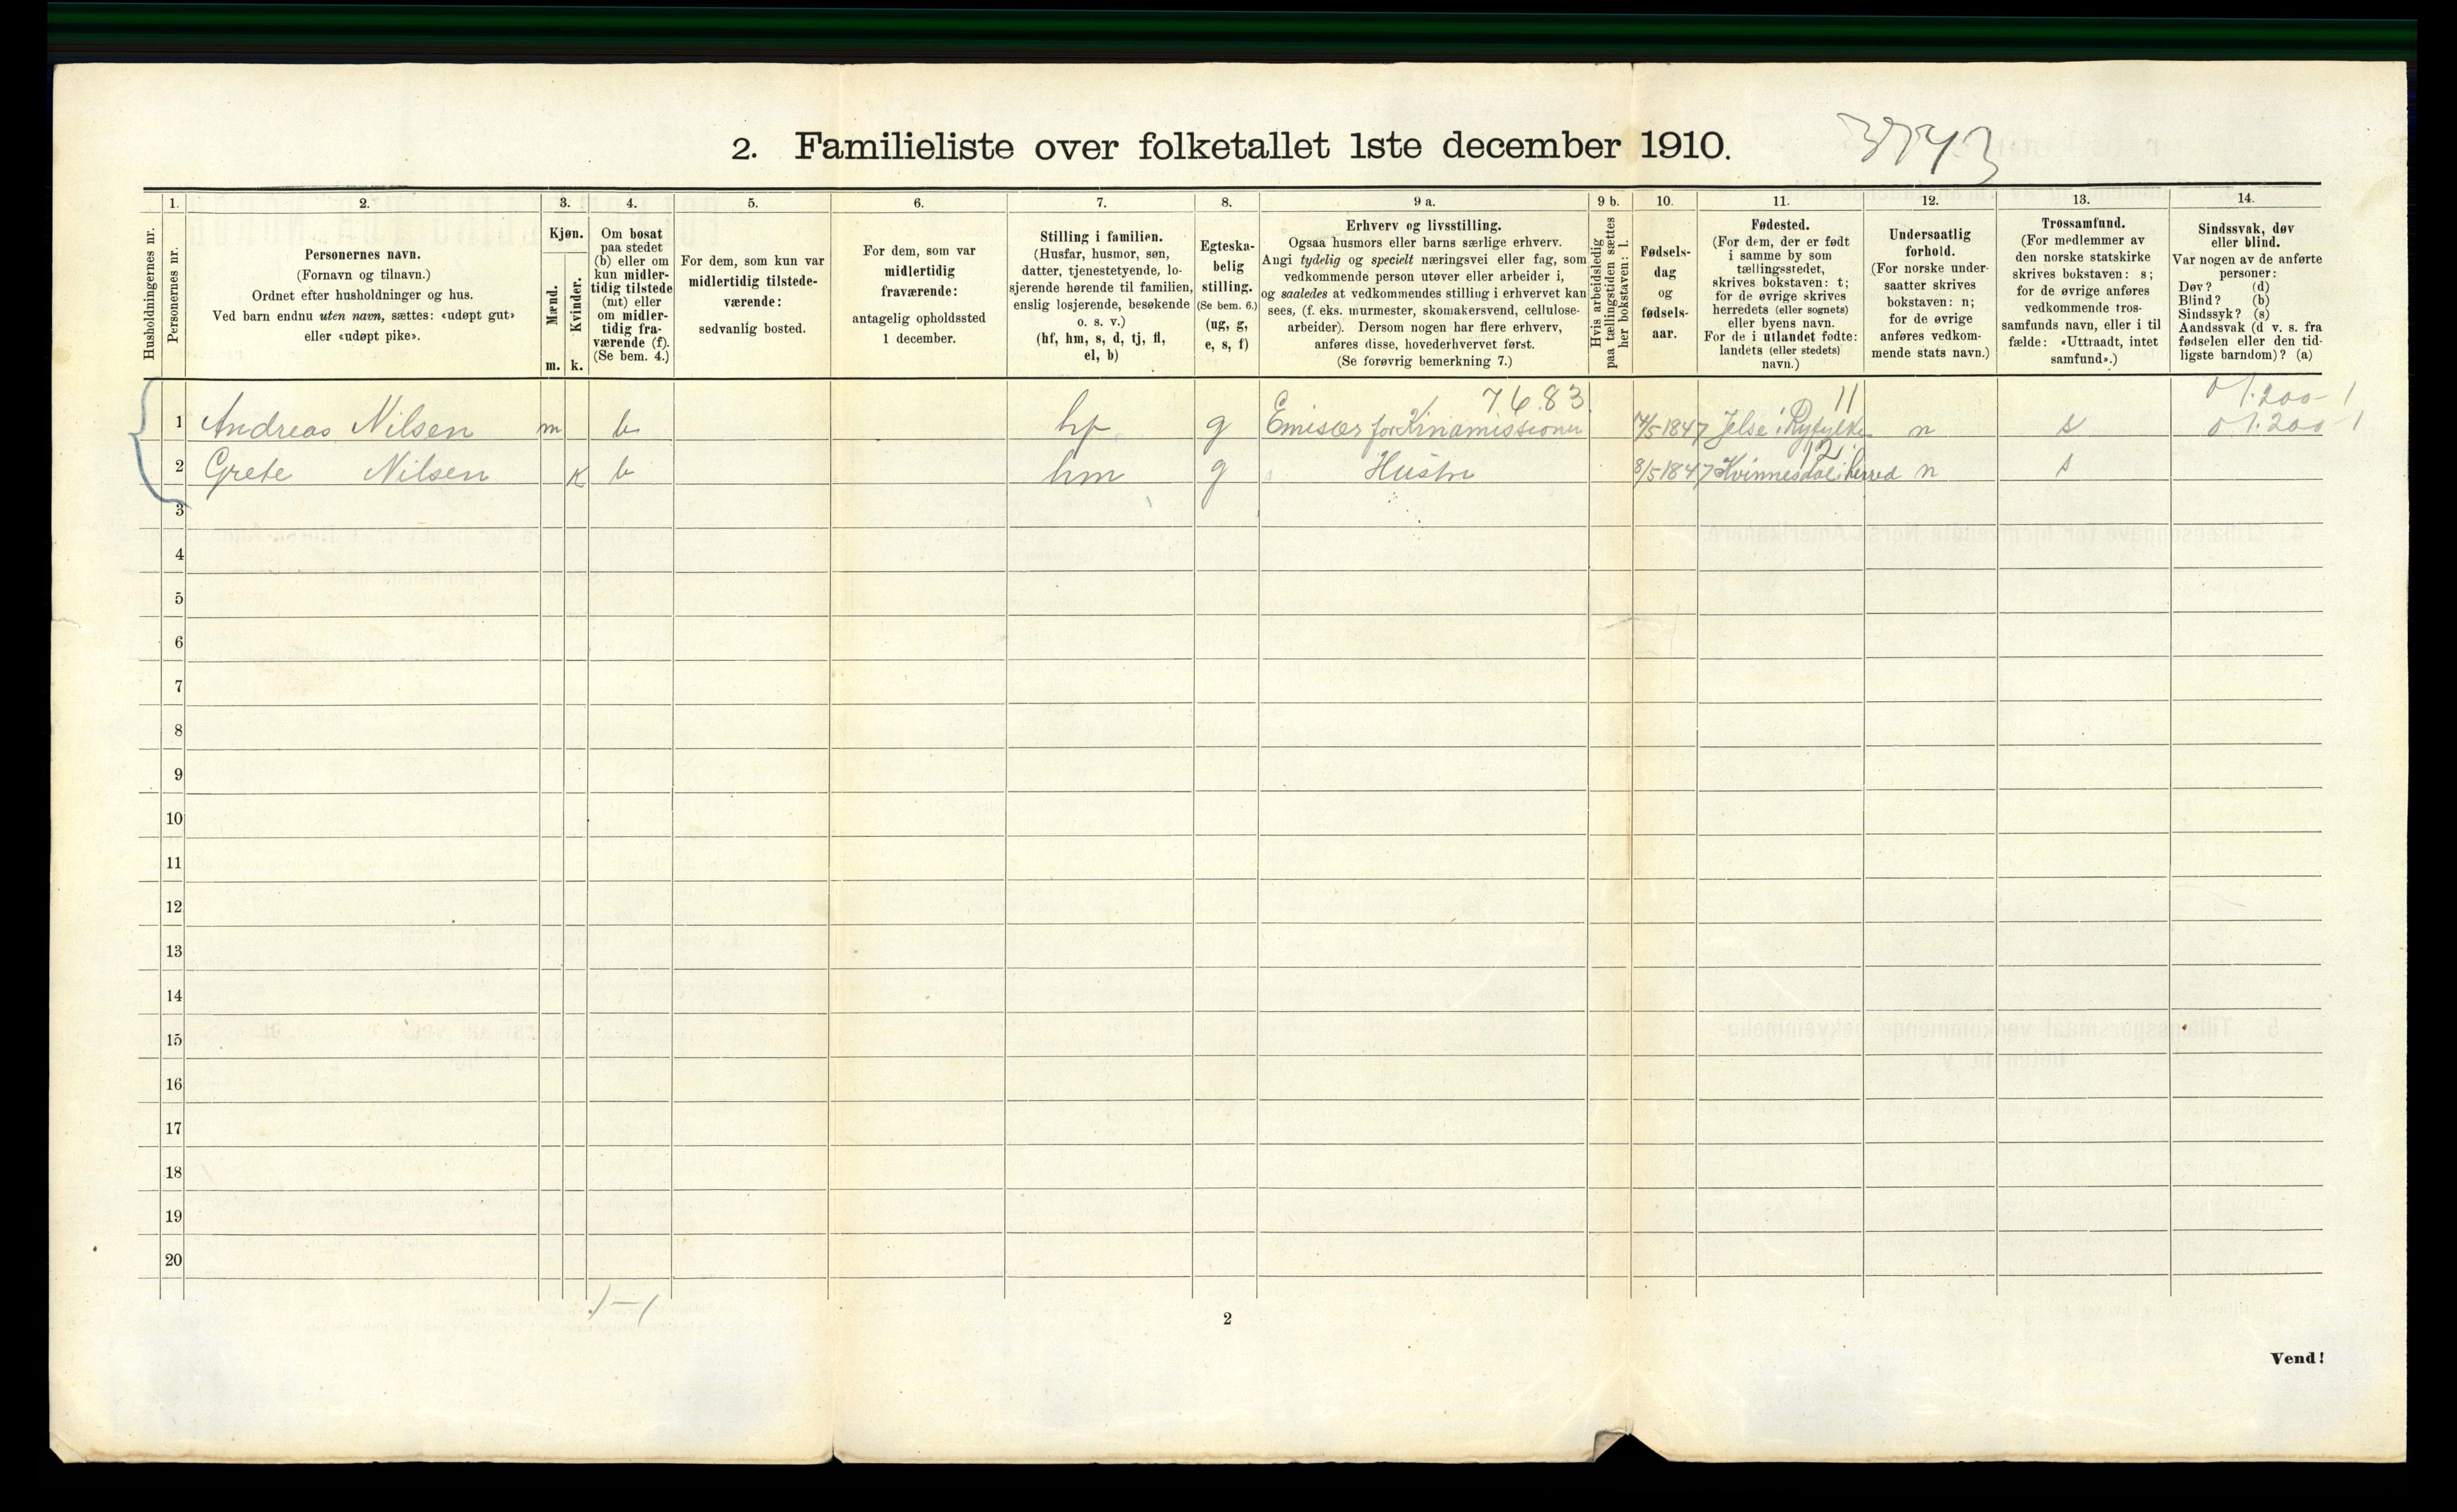 2. Familieliste over folketallet 1ste december 1910.
3743
Husholdningernes nr.
1.
Personernes nr.
2.
Personernes navn.
(Fornavn og tilnavn.)
Ordnet efter husholdninger og hus.
Ved barn endnu uten navn, sættes: «udøpt gut»
eller «udøpt pike».
3.
Kjøn.
Mænd.
Kvinder.
m.
k.
4.
Om bosat
paa stedet
(b) eller om
kun midler-
tidig tilstede
(mt) eller
om midler-
tidig fra-
værende (f).
(Se bem. 4.)
5.
For dem, som kun var
midlertidig tilstede-
værende:
sedvanlig bosted.
6.
For dem, som var
midlertidig
fraværende:
antagelig opholdssted
1 december.
7.
Stilling i familien.
(Husfar, husmor, søn,
datter, tjenestetyende, lo-
sjerende hørende til familien,
enslig losjerende, besøkende
o. s. v.)
(hf, hm, s, d, tj, fl,
el, b)
8.
Egteska-
belig
stilling.
(Se bem. 6.)
(ug, g,
e, s, f)
9 a.
Erhverv og livsstilling.
Ogsaa husmors eller barns særlige erhverv.
Angi tydelig og specielt næringsvei eller fag, som
vedkommende person utøver eller arbeider i,
og saaledes at vedkommendes stilling i erhvervet kan
sees, (f. eks. murmester, skomakersvend, cellulose-
arbeider). Dersom nogen har flere erhverv,
anføres disse, hovederhvervet først.
(Se forøvrig bemerkning 7.)
9 b.
Hvis arbeidsledig
paa tællingstiden sættes
her bokstaven: l.
10.
Fødsels-
dag
og
fødsels-
aar.
11.
Fødested.
(For dem, der er født
i samme by som
tællingsstedet,
skrives bokstaven: t;
for de øvrige skrives
herredets (eller sognets)
eller byens navn.
For de i utlandet fødte:
landets (eller stedets)
navn.)
12.
Undersaatlig
forhold.
(For norske under-
saatter skrives
bokstaven: n;
for de øvrige
anføres vedkom-
mende stats navn.)
13.
Trossamfund.
(For medlemmer av
den norske statskirke
skrives bokstaven: s;
for de øvrige anføres
vedkommende tros-
samfunds navn, eller i til
fælde: «Uttraadt, intet
samfund».)
14.
Sindssvak, døv
eller blind.
Var nogen av de anførte
personer:
Døv? (d)
Blind? (b)
Sindssyk? (s)
Aandssvak (d v. s. fra
fødselen eller den tid-
ligste barndom)? (a)
7683 11 01.200-1
1 Andreas Nilsen m b hf g Emisær for Kinamissionen 14/5 1847 Jelse i Ryfylke n s 01.200-1
12
2 Grete Nilsen k b hm g Hustru 8/5 1847 Kvinnesdal herred n s
3
4
5
6
7
8
9
10
11
12
13
14
15
16
17
18
19
20
1-1
2
Vend!